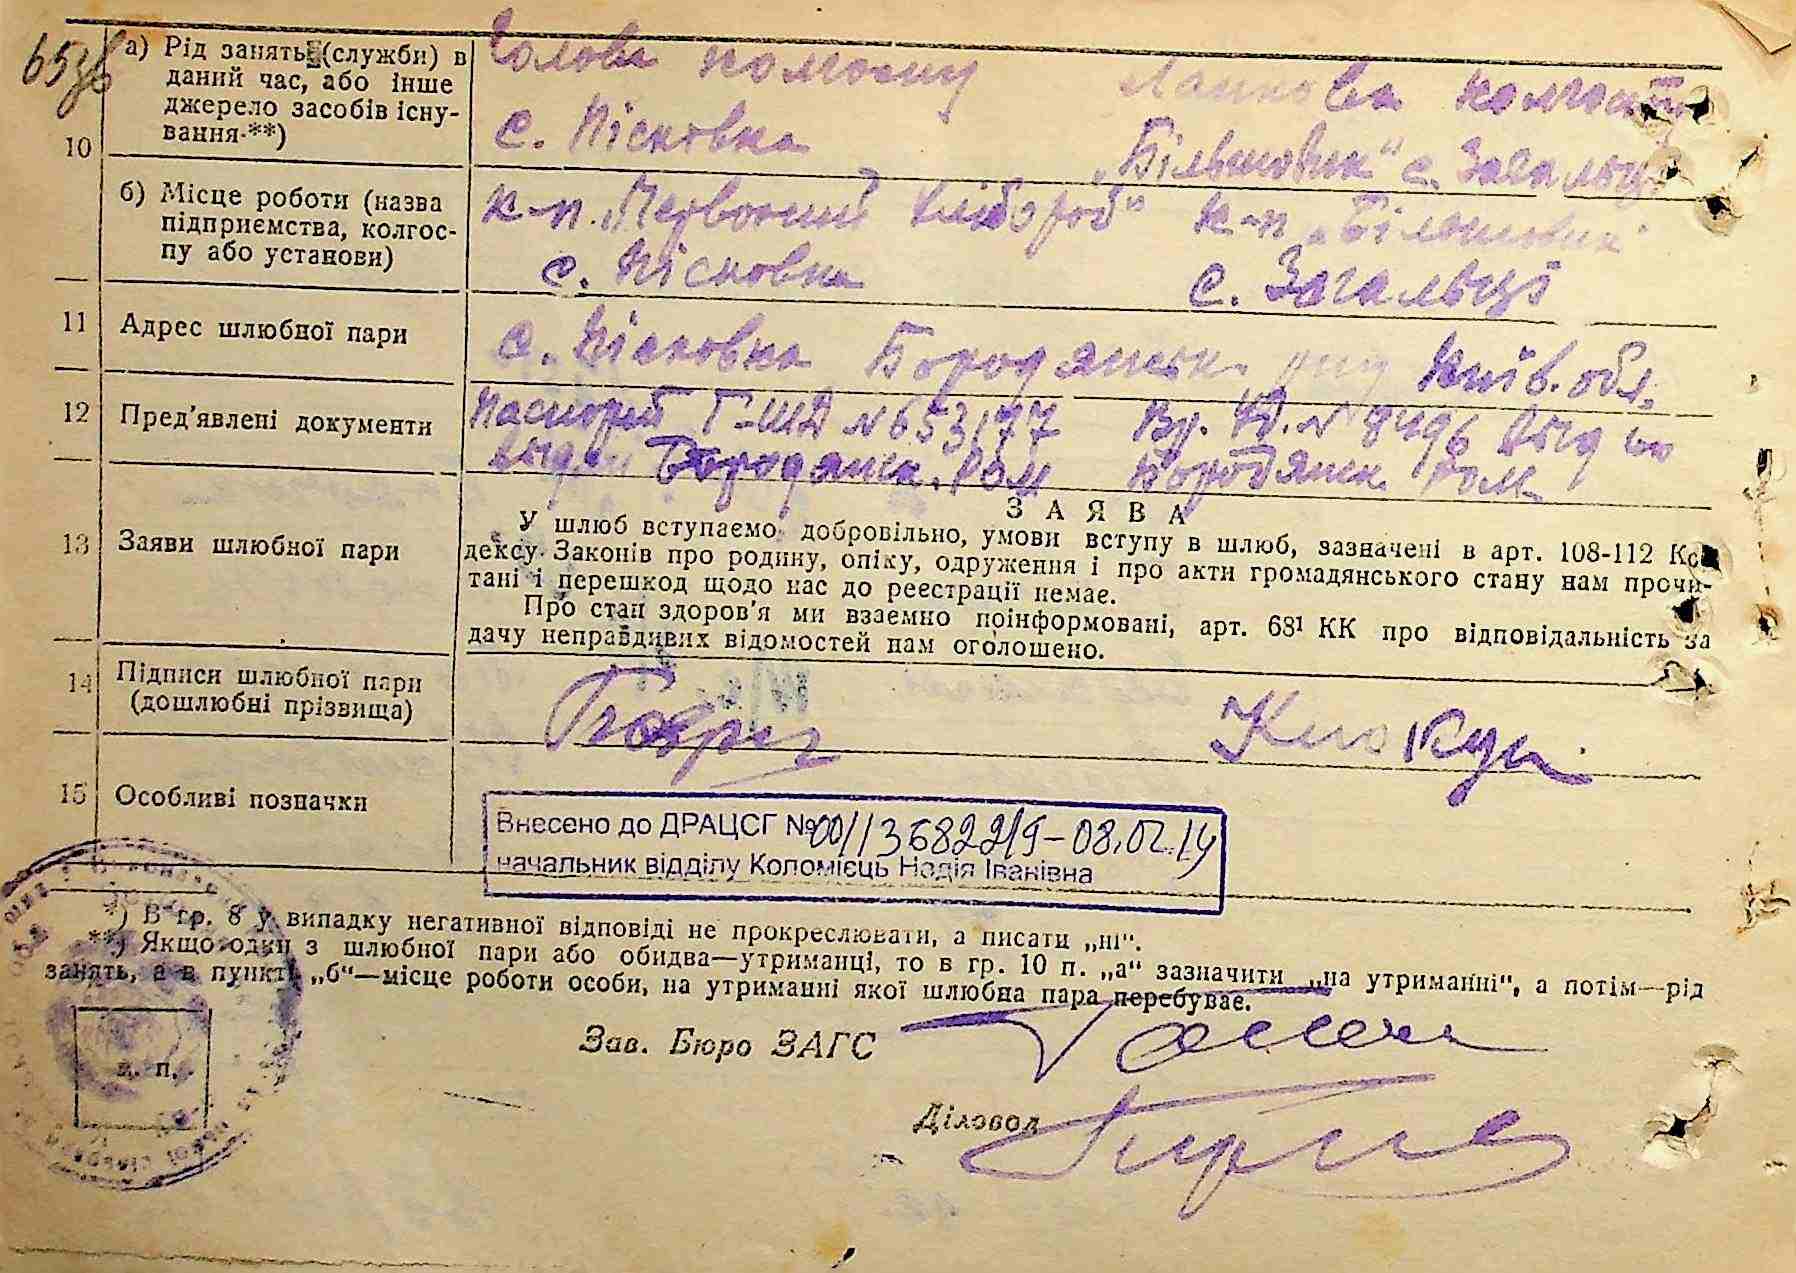 65зв
10
а) Рід занять (служби) в
даний час, або інше
джерело засобів існу-
вання **)
Голова колгоспу
с. Пісковка
Ланкова колгоспу
„Більшовик“ с. Загальці
б) Місце роботи (назва
підприємства, колгос-
пу або установи)
к-п. „Червоний хлібороб“
с. Пісковка
к-п „Більшовик“
с. Загальці
11 Адрес шлюбної пари
с. Пісковка Бородянськ. р-ну Київ. обл.
12 Пред'явлені документи
Паспорт Г-ША № 653177
Бородянск. РОМ
№ 8496
Бородянск. РОМ
13 Заяви шлюбної пари
ЗАЯВА
У шлюб вступаємо добровільно, умови вступу в шлюб, зазначені в арт. 108-112 Ко-
дексу Законів про родину, опіку, одруження і про акти громадянського стану нам прочи-
тані і перешкод щодо нас до реєстрації немає.
Про стан здоров'я ми взаємно поінформовані, арт. 68¹ КК про відповідальність за
дачу неправдивих відомостей нам оголошено.
14 Підписи шлюбної пари
(дошлюбні прізвища)
15 Особливі позначки
Внесено до ДРАЦСГ № 00113682219-08.02.14
начальник відділу Коломієць Надія Іванівна
*) В гр. 8 у випадку негативної відповіді не прокреслювати, а писати „ні“.
**) Якщо один з шлюбної пари або обидва—утриманці, то в гр. 10 п. „а“ зазначити „на утриманні“, а потім—рід
занять, а в пункті „б“—місце роботи особи, на утриманні якої шлюбна пара перебуває.
Зав. Бюро ЗАГС
м. п.
Діловод